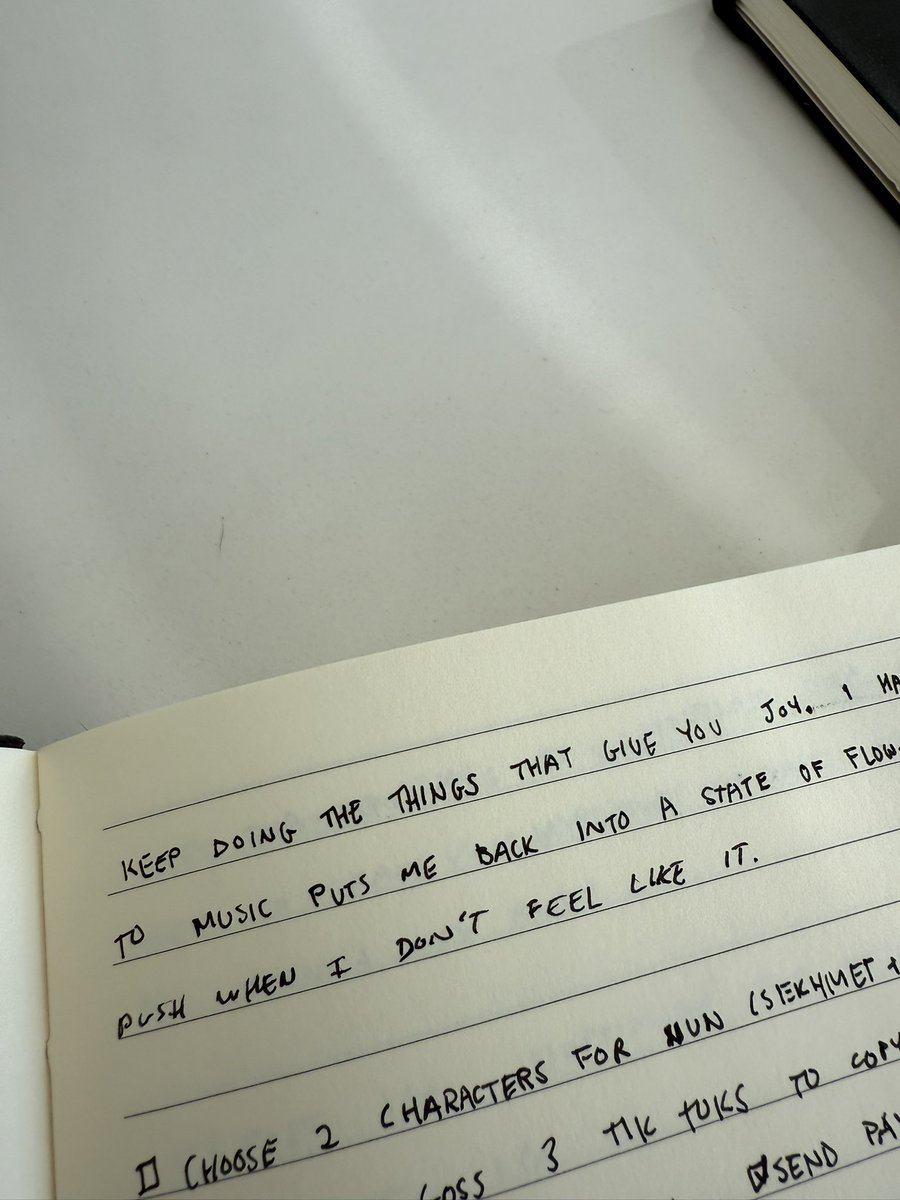 KEEP DOING THE THINGS THAT GIVE YOU JOY. I HA
TO MUSIC PUTS ME BACK INTO A STATE OF FLOW.
PUSH WHEN I DON'T FEEL LIKE IT.
☐ CHOOSE 2 CHARACTERS FOR NUN (SEKHMET +
3 TIK TOKS TO COPY
☑ SEND PAY